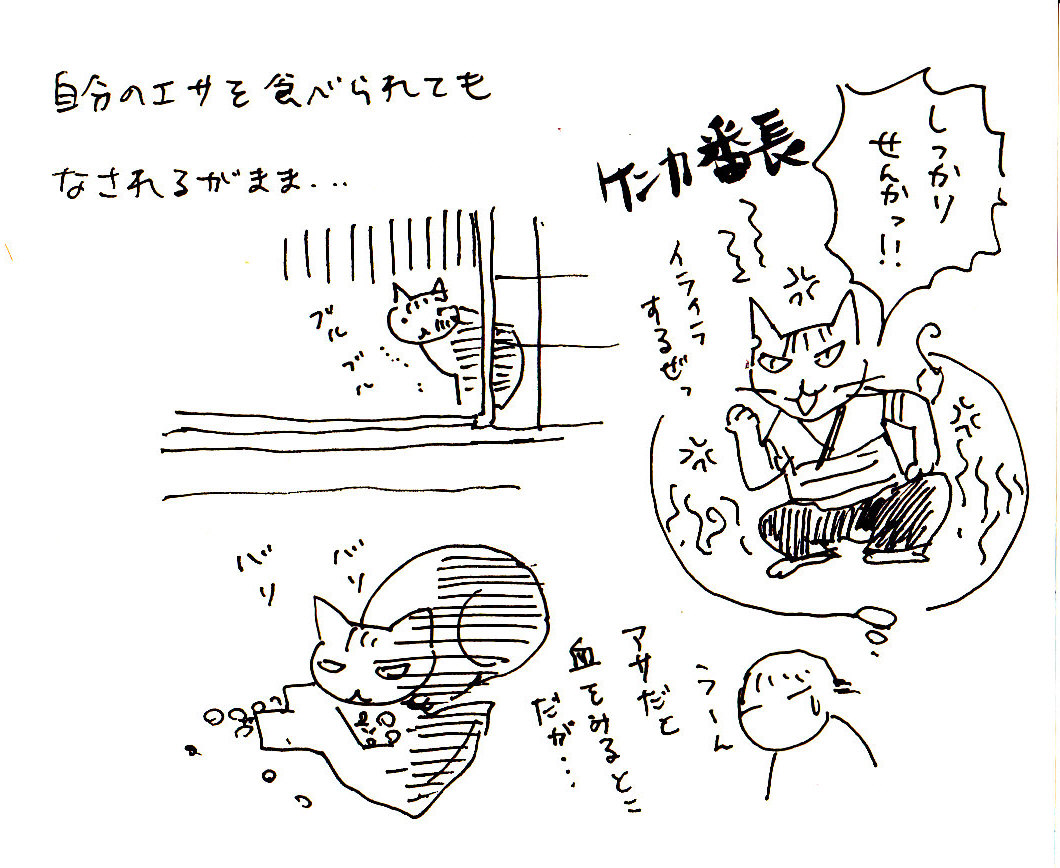 自分のエサを食べられても
なされるがまま...
ケンカ番長
しっかり
せんかっ!!
イライラ
するぜっ
ブル
ブル
バリ
バリ
うーん
アサだと
血をみるとこ
だが...